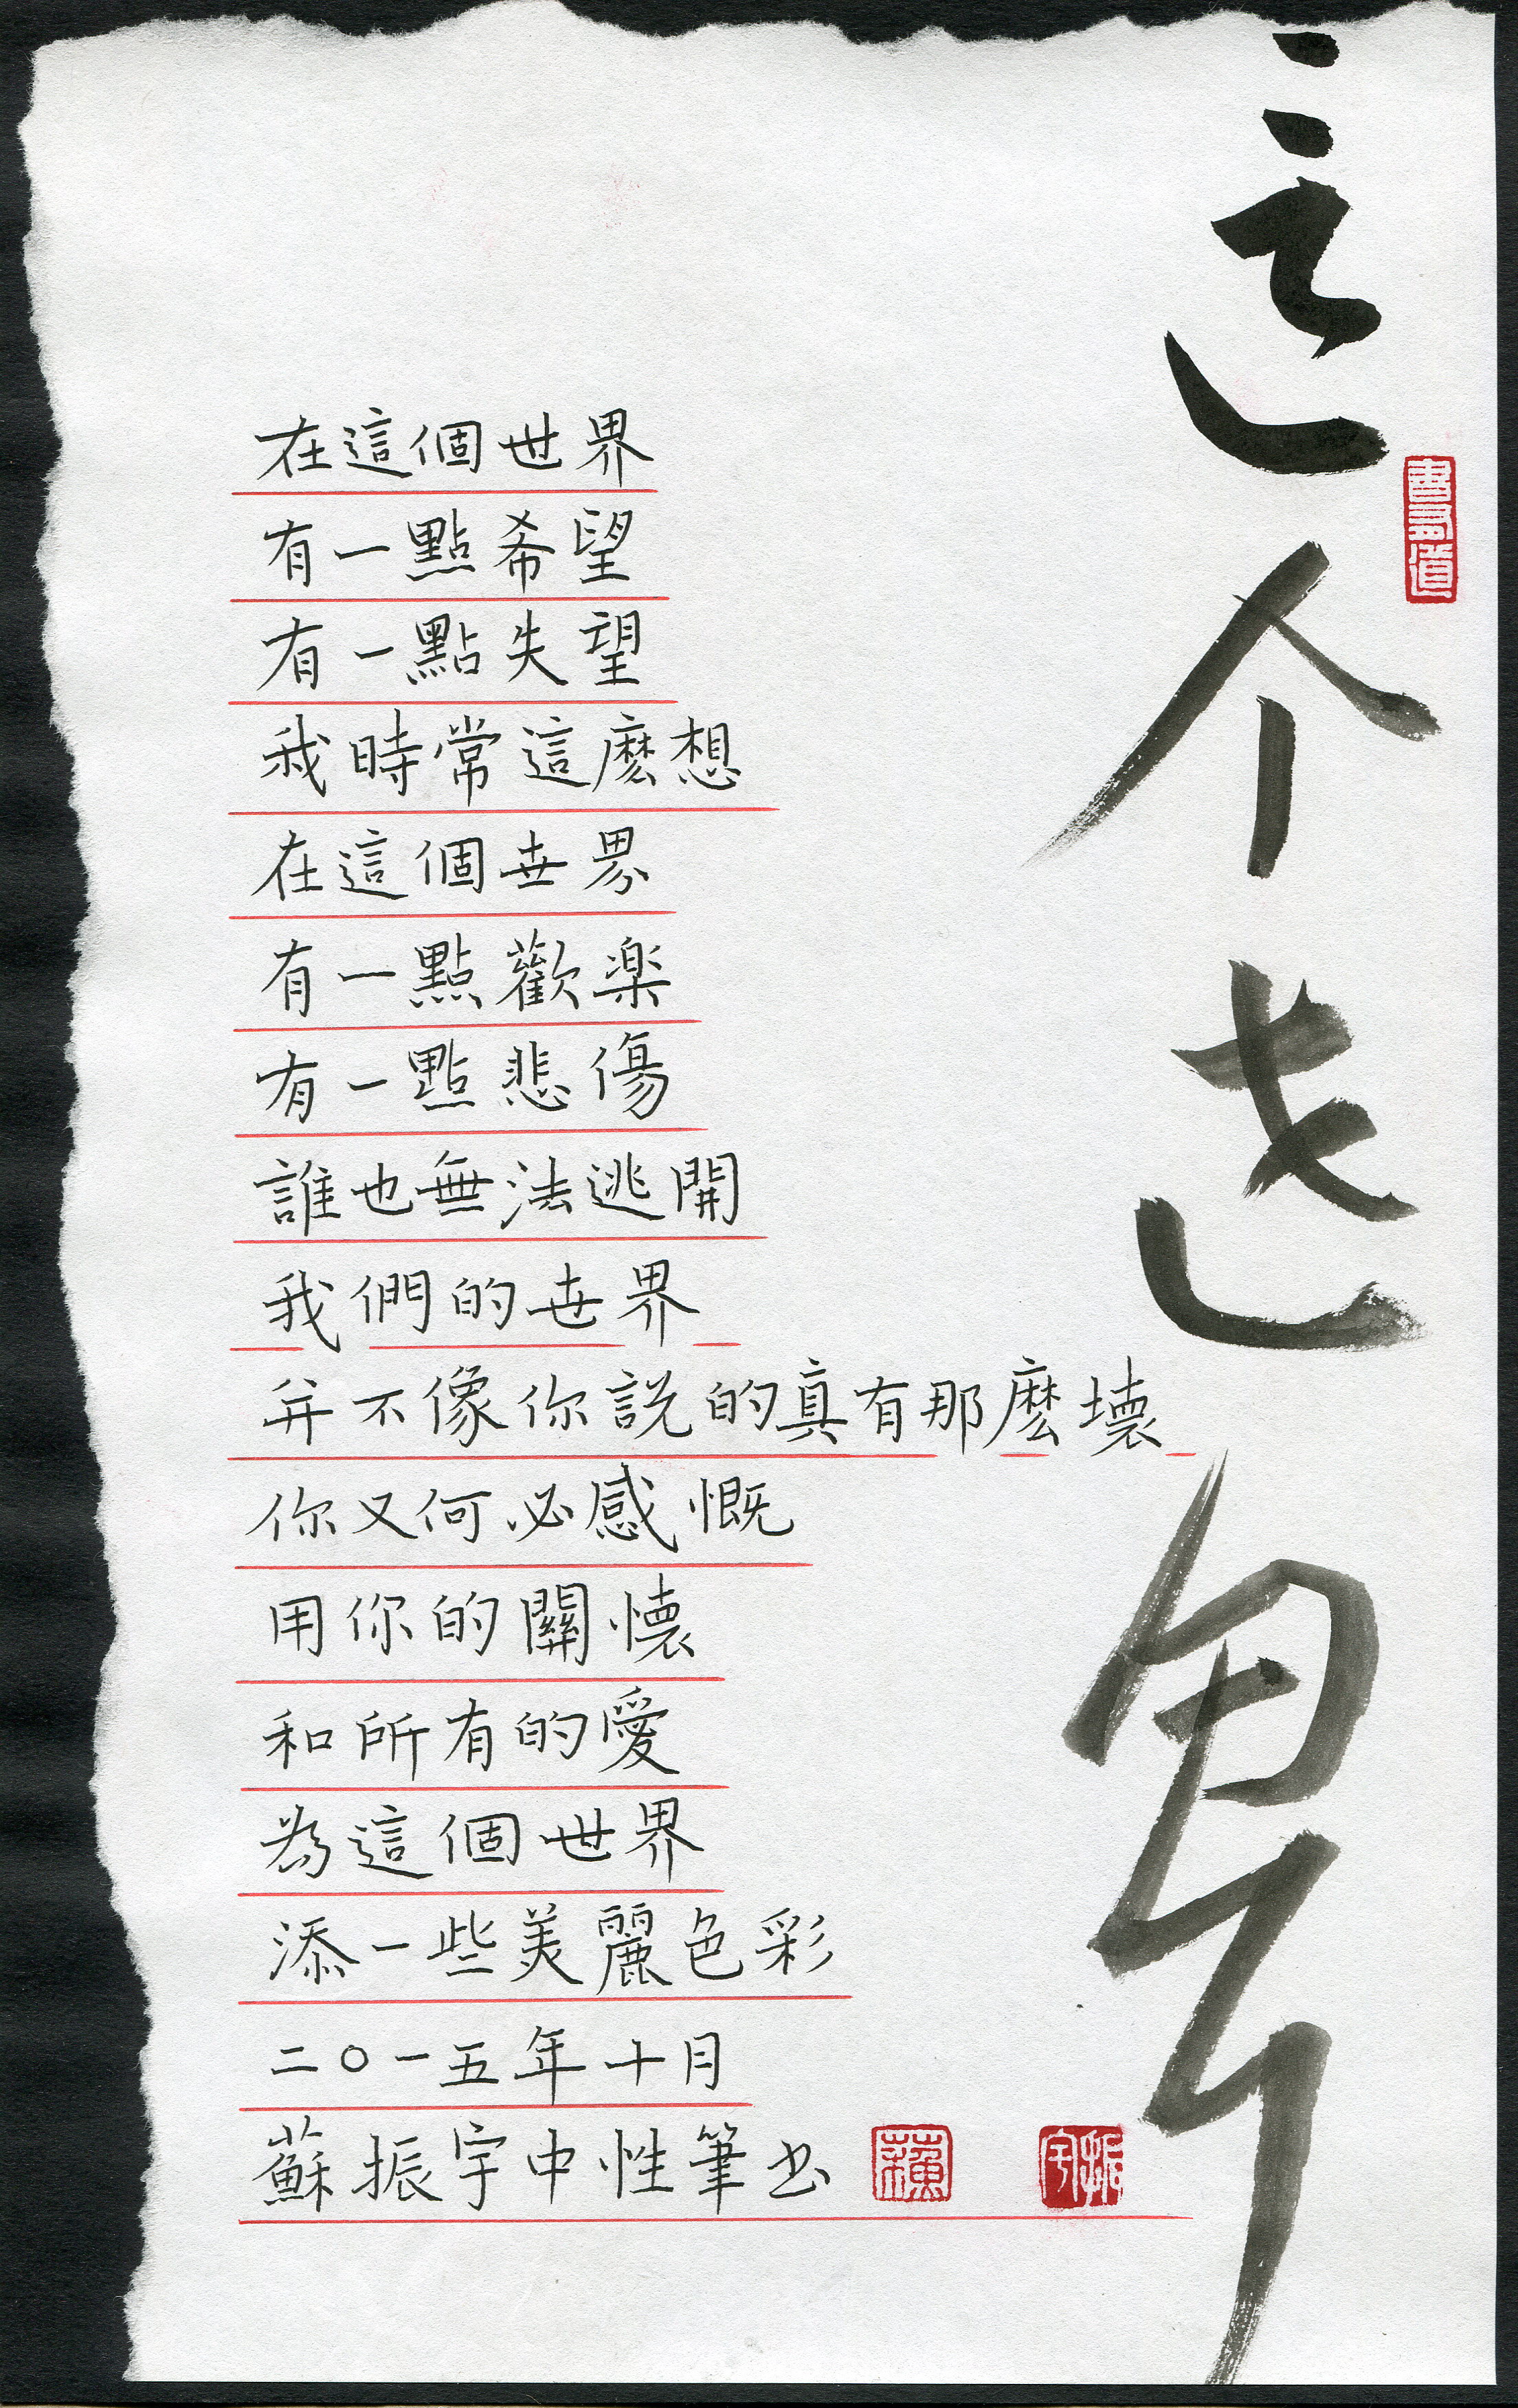 这个世界
在這個世界
有一點希望
有一點失望
我時常這麽想
在這個世界
有一點歡楽
有一點悲傷
誰也無法逃開
我們的世界
并不像你説的真有那麽壞
你又何必感慨
用你的關懷
和所有的愛
為這個世界
添一些美麗色彩
二〇一五年十月
蘇振宇中性筆书
蘇
振宇